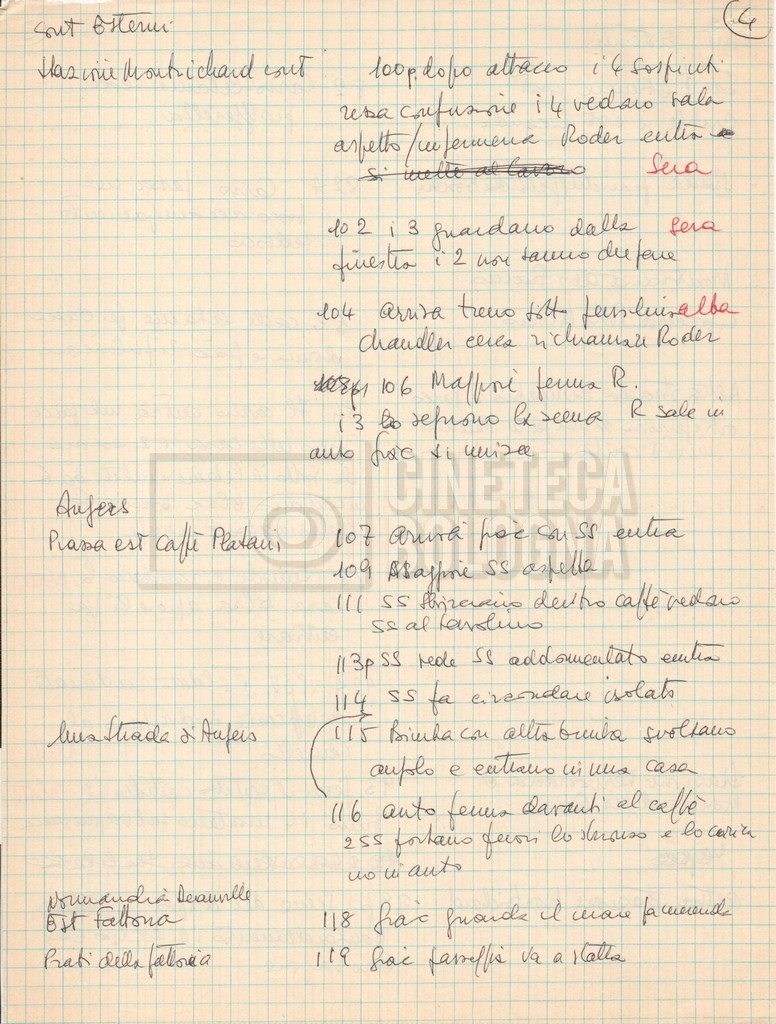 4
cont Esterni
Stazione Montrichard cont
100p. dopo attacco i 4 sospinti
ressa confusione i 4 vedono sala
aspetto/infermeria Roder entra e
si mette al lavoro Sera
102 i 3 guardano dalla sera
finestra i 2 non sanno che fare
104 arriva treno alba
chandler cerca richiamare Roder
106 Maggiore ferma R.
i 3 seguono la scena R sale in
auto si unisce
Angers
Piazza est caffè Platani
107 arriva con SS entra
109 Maggiore SS aspetta
111 SS dentro caffè vedono
SS al tavolino
113p SS vede SS addormentato entra
114 SS fa circondare isolato
Una Strada di Angers
115 Bimba con altra bimba svoltano
angolo e entrano in una casa
116 auto ferma davanti al caffè
2 SS portano fuori lo e lo carica
no in auto
Normandia
Est Fattoria
118 guarda il mare fa merenda
Prati della fattoria
119 va a stalla
CINETECA
BOLOGNA